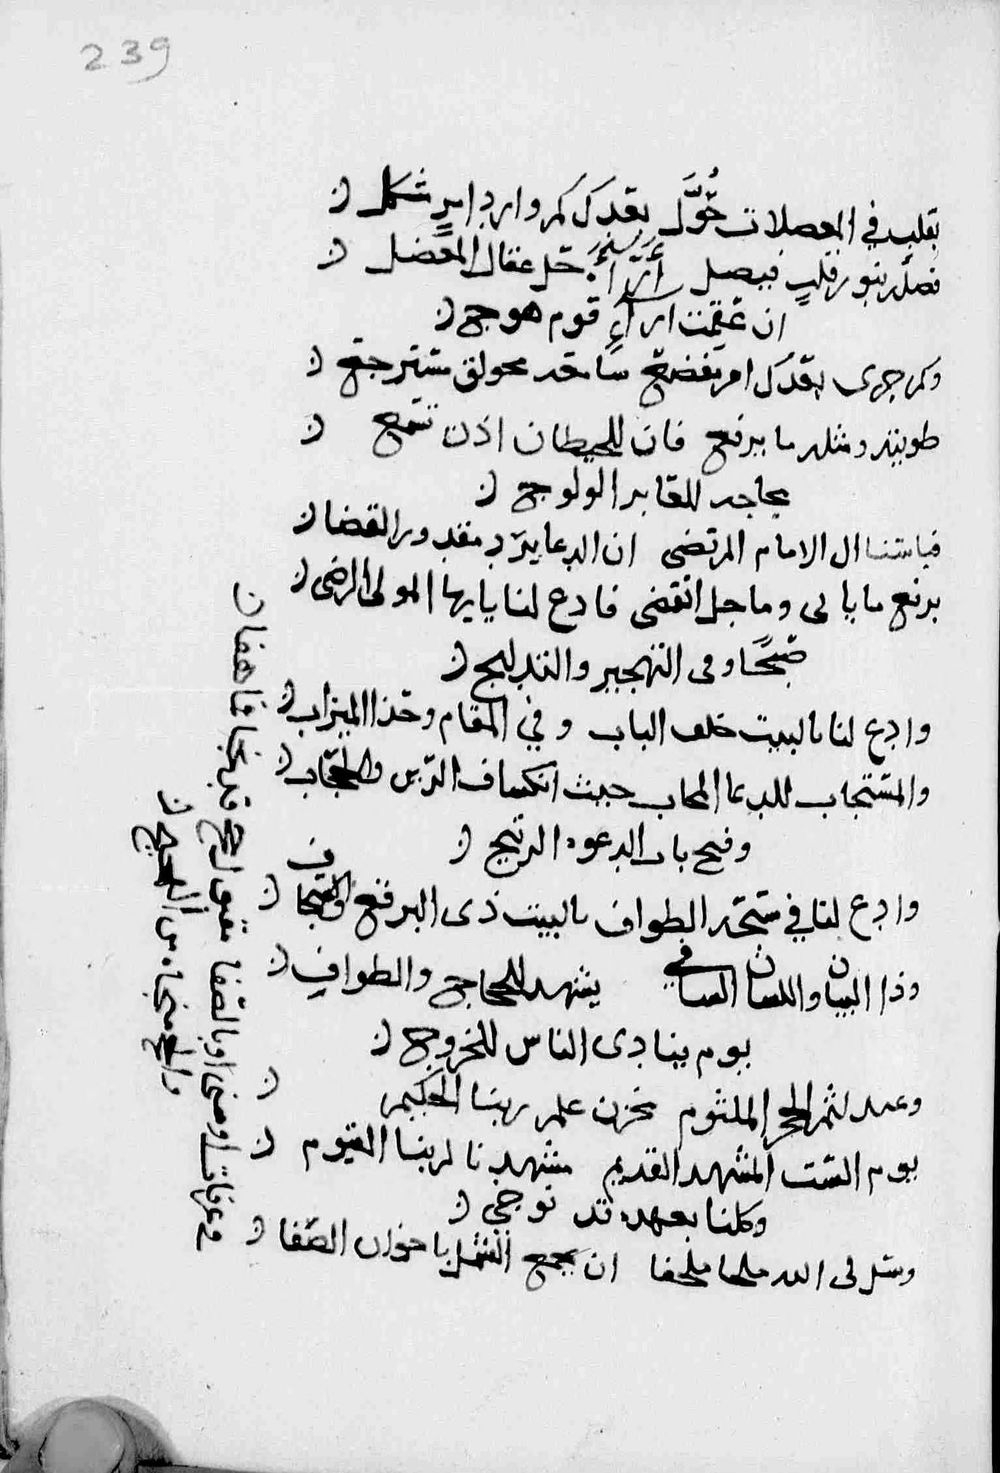 239
بقلب في المعضلات حُوَّل بعدك كم وارد امرٍ شكل
فصله بنور قلبٍ فيصل حل عقال المعضل
ان عقمت اراء قوم هوج
وكم جرى بعدك امر يفضع محولق مسترجع
طوينه ومثله ما يرفع فان للحيطان اذن تسمع
الولوج
فيا سنا ال الامام المرتضى ان الدعا يرد مقدور القضا
برفع ما ياتي وما جل انقضى فادع لنا يا ايها المولى الرضى
ضبحًا وفي التهجير والتدليج
وادع لنا بالبيت خلف الباب وفي المقام وحذا الميزاب
والمستجاب للدعا المجاب حيث انكساف الدين والحجاب
وفتح باب الدعوه الرتيج
وادع لنا في ستحة الطواف بالبيت ذي البرقع
وذا البيان واللسان الصافي يشهد للحجاج والطواف
يوم ينادى الناس للخروج
وعند لثم الحجر الملثوم مخزن علم ربنا الحكيم
يوم الست المشهد القديم مشهدنا لربنا القيوم
وكلنا بعهده قد نوجي
وسل لي الله ملحا ملحفا ان يجمع الشمل باخوان الصفا
وعرفات او منى او بالصفا